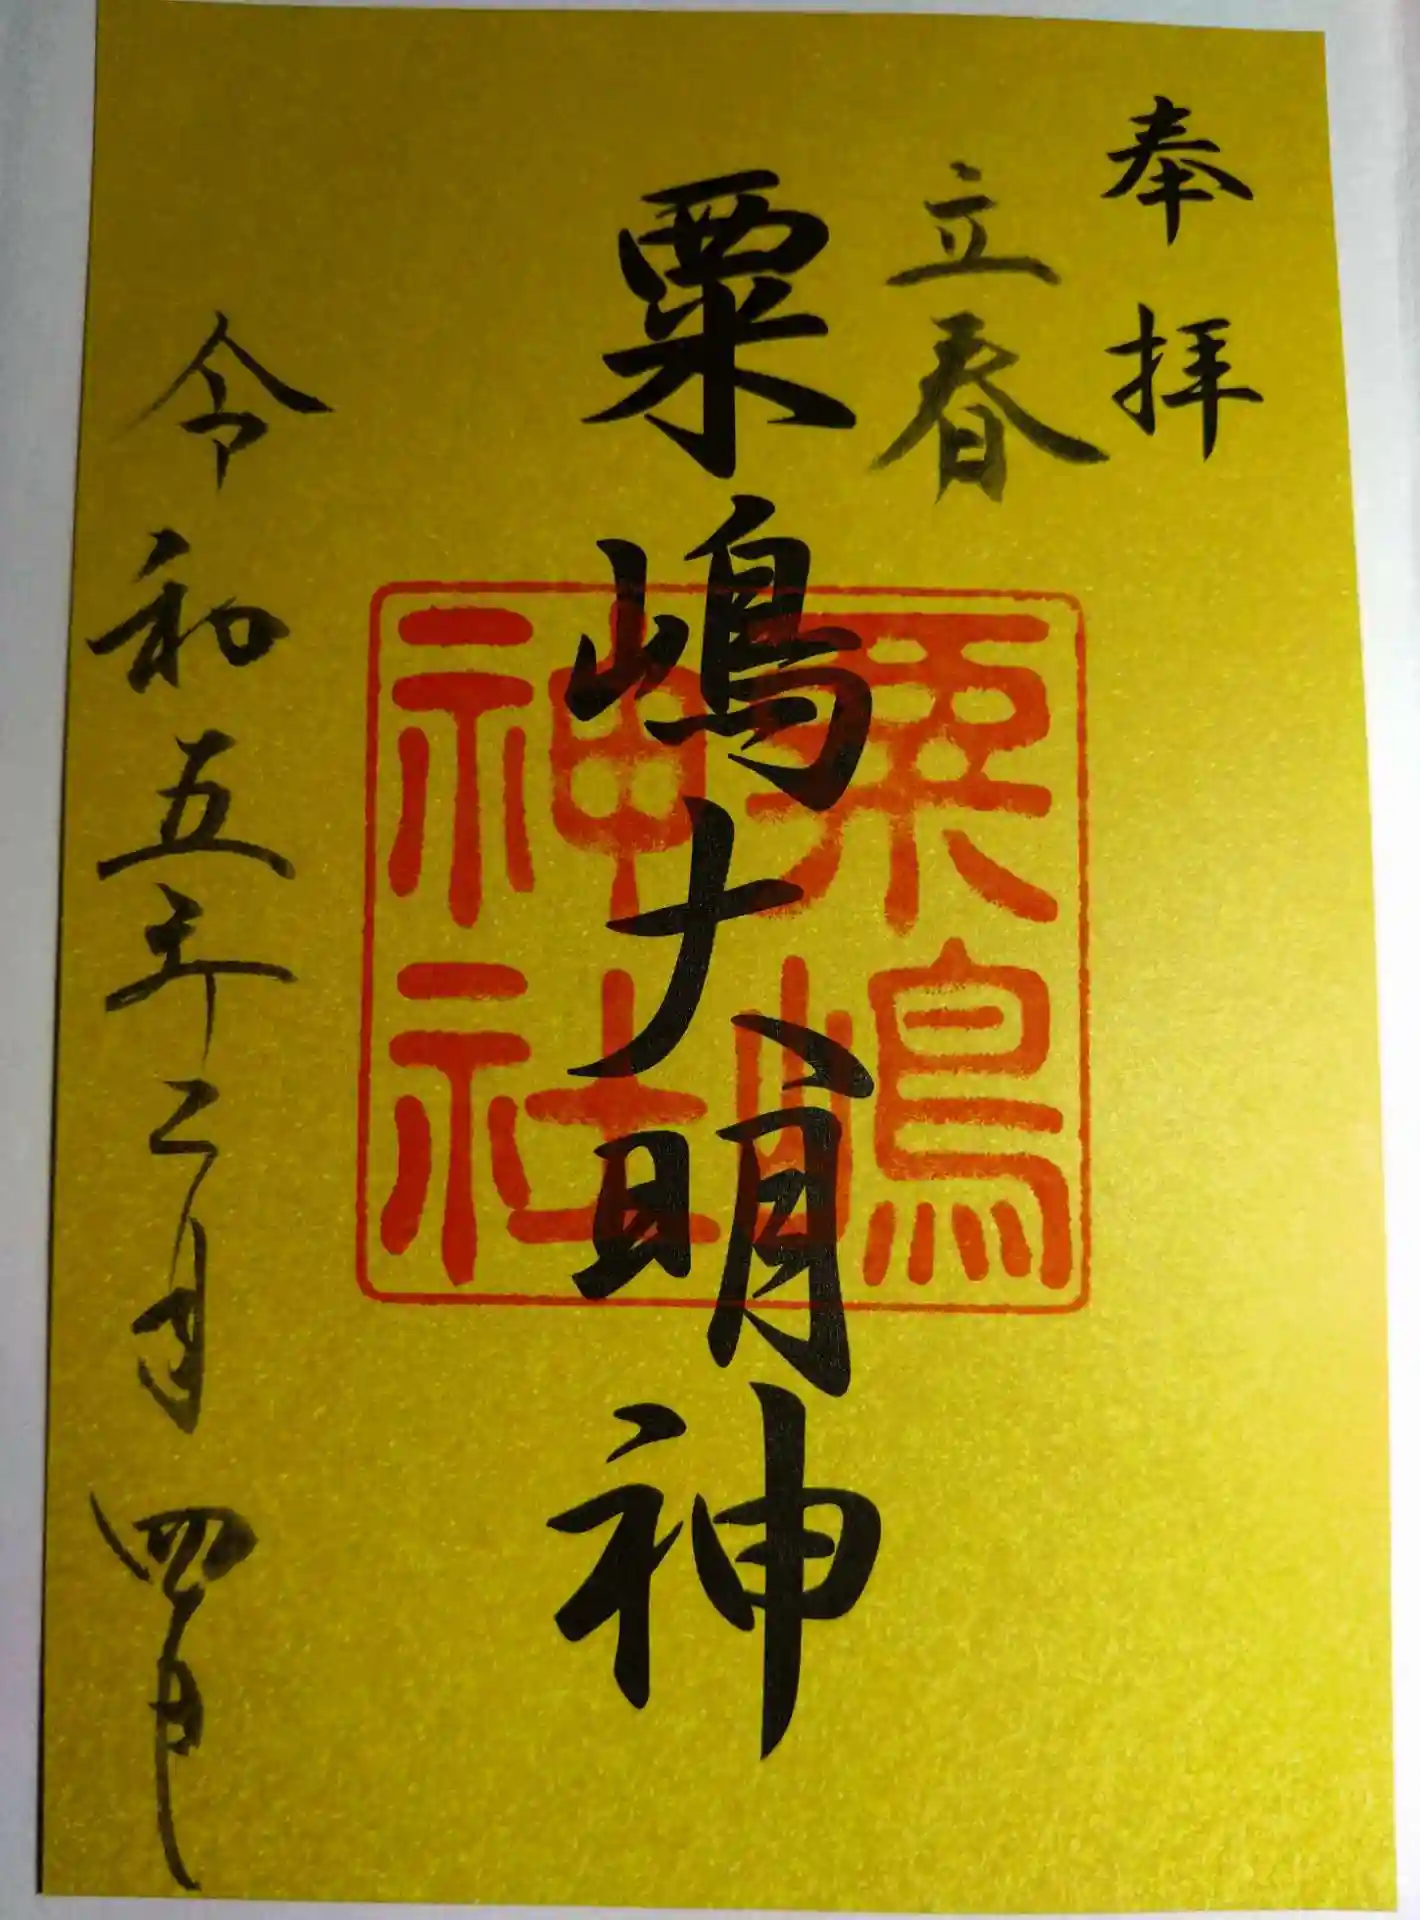 奉拝
立春
粟嶋大明神
粟嶋
神社
令和五年二月四日